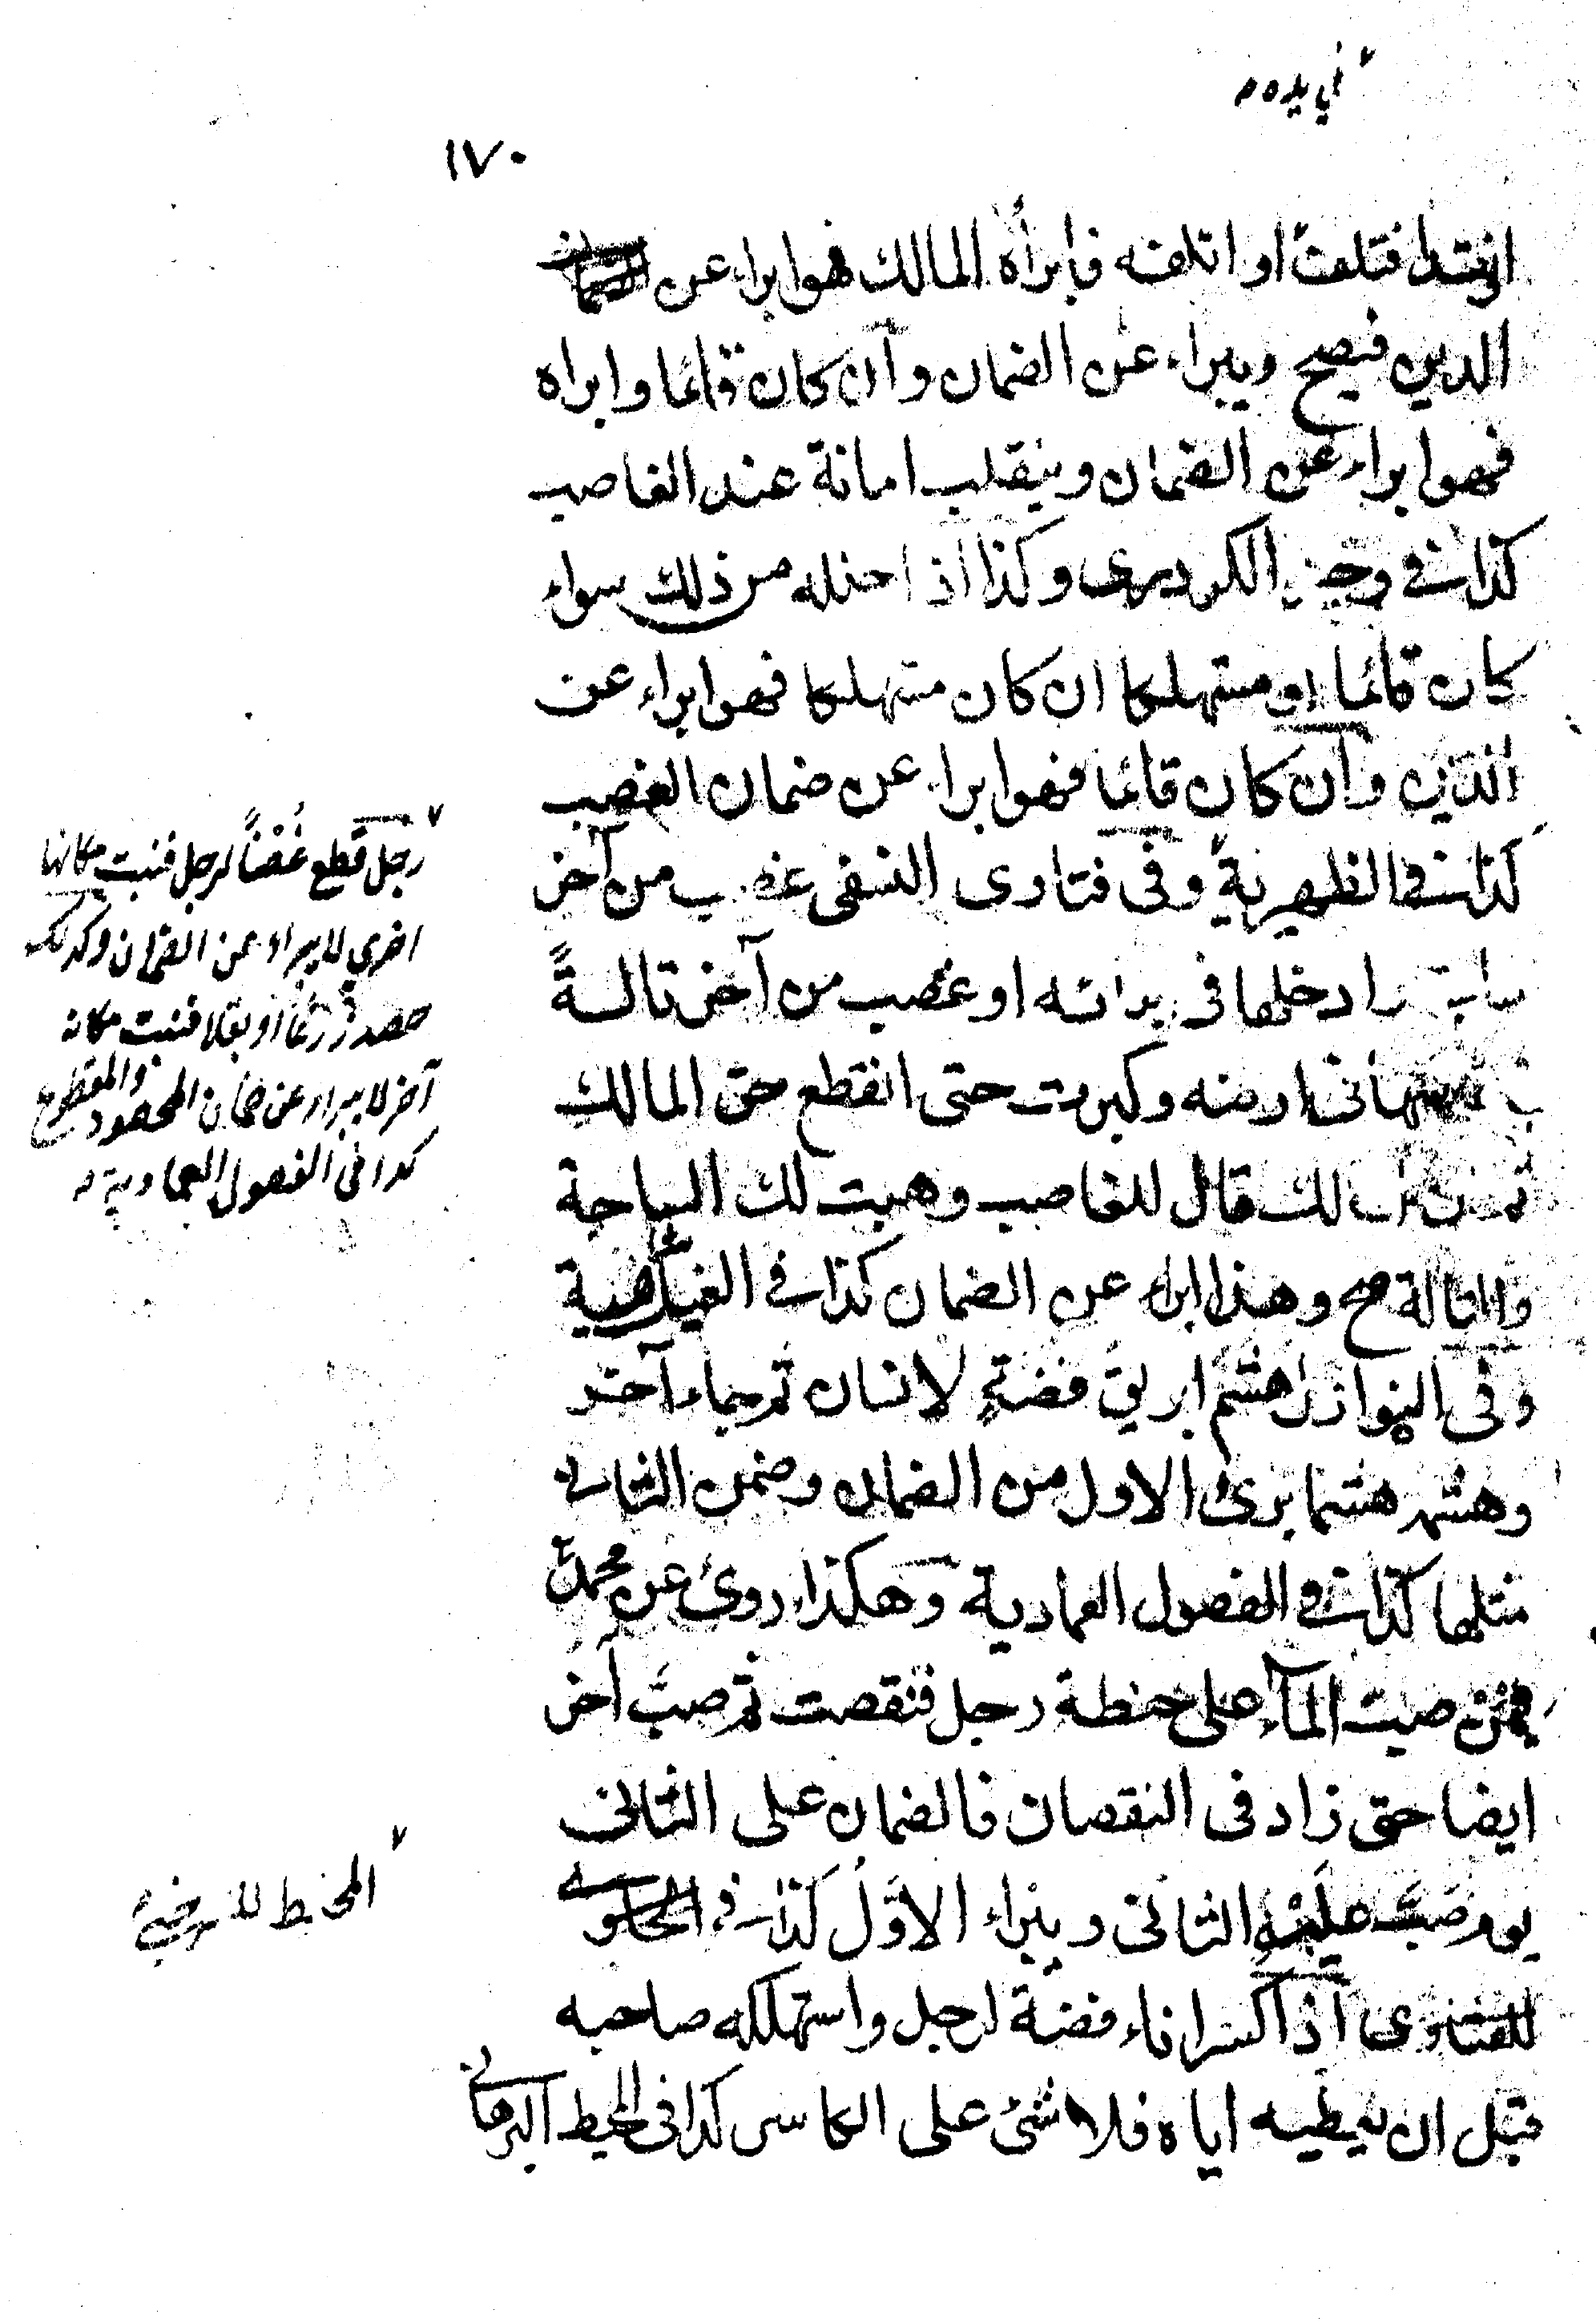 في يده م
١٧٠
او تلفه فابرأه المالك فهو ابراء عن
الدين فيصح ويبراء عن الضمان وان كان قائما وابراه
فهو ابراء عن الضمان وينقلب امانة عند الغاصب
كذا في وجيز الكردرى وكذا اذا حلله من ذلك سواء
كان قائما او مستهلكا ان كان مستهلكا فهو ابراء عن
الدين وان كان قائما فهو ابراء عن ضمان الغصب
كذا في الظهيرية وفى فتاوى النسفى غصب من آخر
ساجة وادخلها فى بنائه او غصب من آخر تالة
فى ارضه وكبرت حتى انقطع حق المالك
ثم ان المالك قال للغاصب وهبت لك الساجة
والتالة صح وهذا ابراء عن الضمان كذا في الغياثية
وفى النوازل هشم ابريق فضة لانسان ثم جاء آخر
وهشمه هشما برئ الاول من الضمان وضمن الثانى
مثلها كذا في الفصول العمادية وهكذا روى عن محمد
فيمن صب الماء على حنطة رجل فنقصت ثم صب آخر
ايضا حتى زاد فى النقصان فالضمان على الثانى
يوم صب عليه الثانى ويبراء الاول كذا في الحاوى
للفتاوى اذا كسر اناء فضة لرجل واستهلكه صاحبه
قبل ان يعطيه اياه فلا شئ على الكاسر كذا فى المحيط البرهانى
رجل قطع غُصْنًا لرجل فنبت مكانها
اخري لا يبراء عن الضمان وكذلك
حصد زرعًا او بقلا فنبت مكانه
آخر لا يبراء عن ضمان المحصود والمقطوع
كذا فى الفصول العمادية م
المحيط للسرخسي